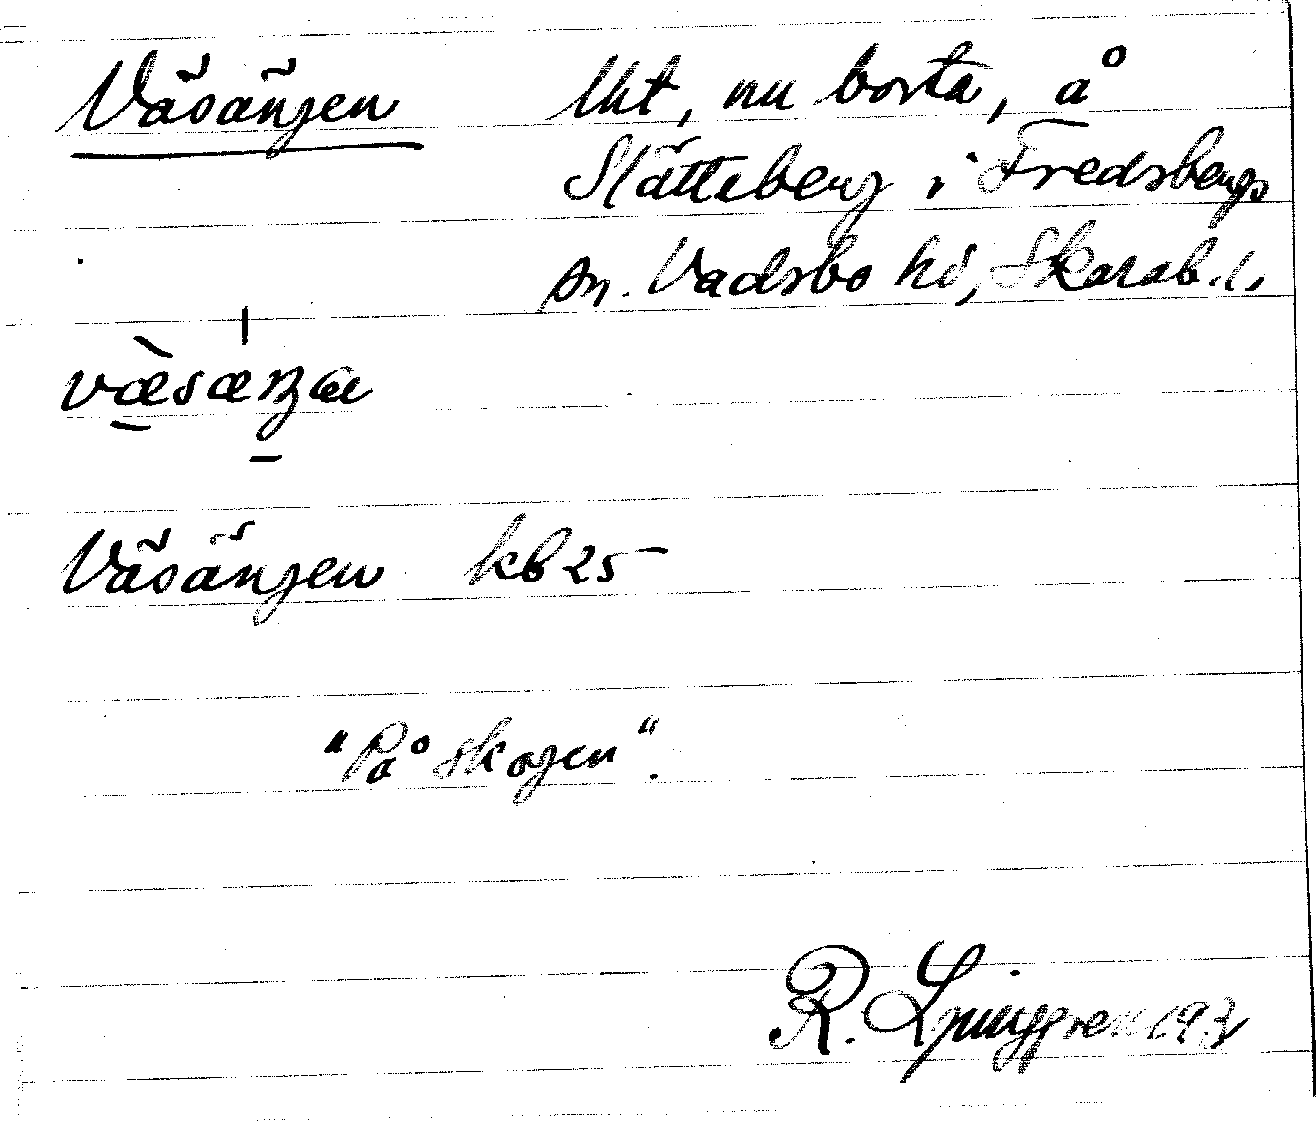 Väsängen Uht, nu borta, å
Slätteberg i Fredsbergs
sn. Vadsbo hd, Skarab. l.
Väsängen kb 25
"På skogen".
R. Ljunggren